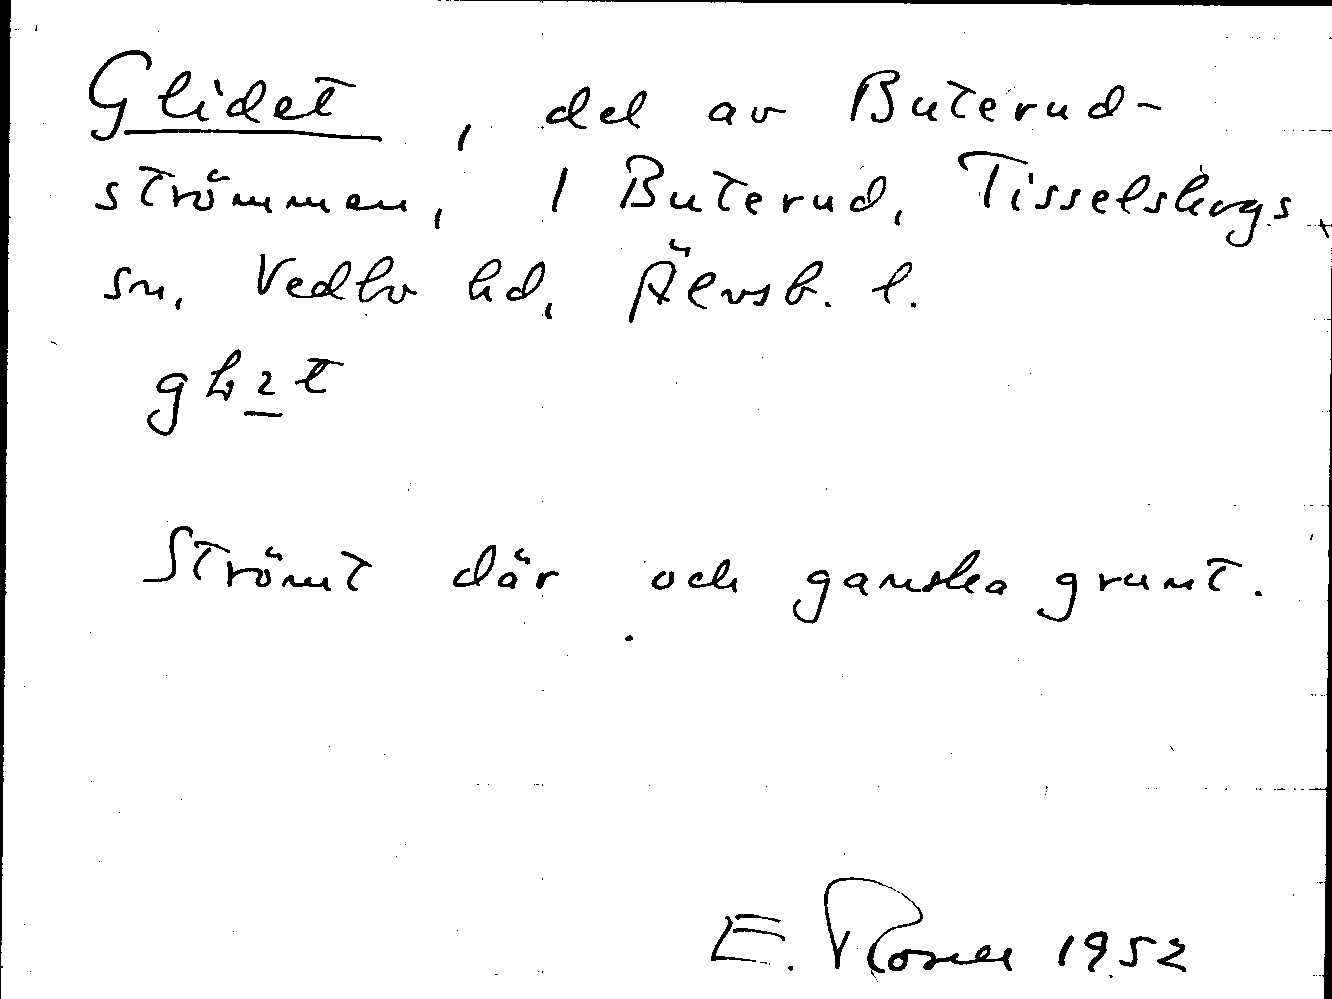 Glidet, del av Buterud-
strömmen, 1 Buterud, Tisselskogs
sn, Vedbo hd, Älvsb. l.
Strömt där och ganska grunt.
E. Rosell 1952